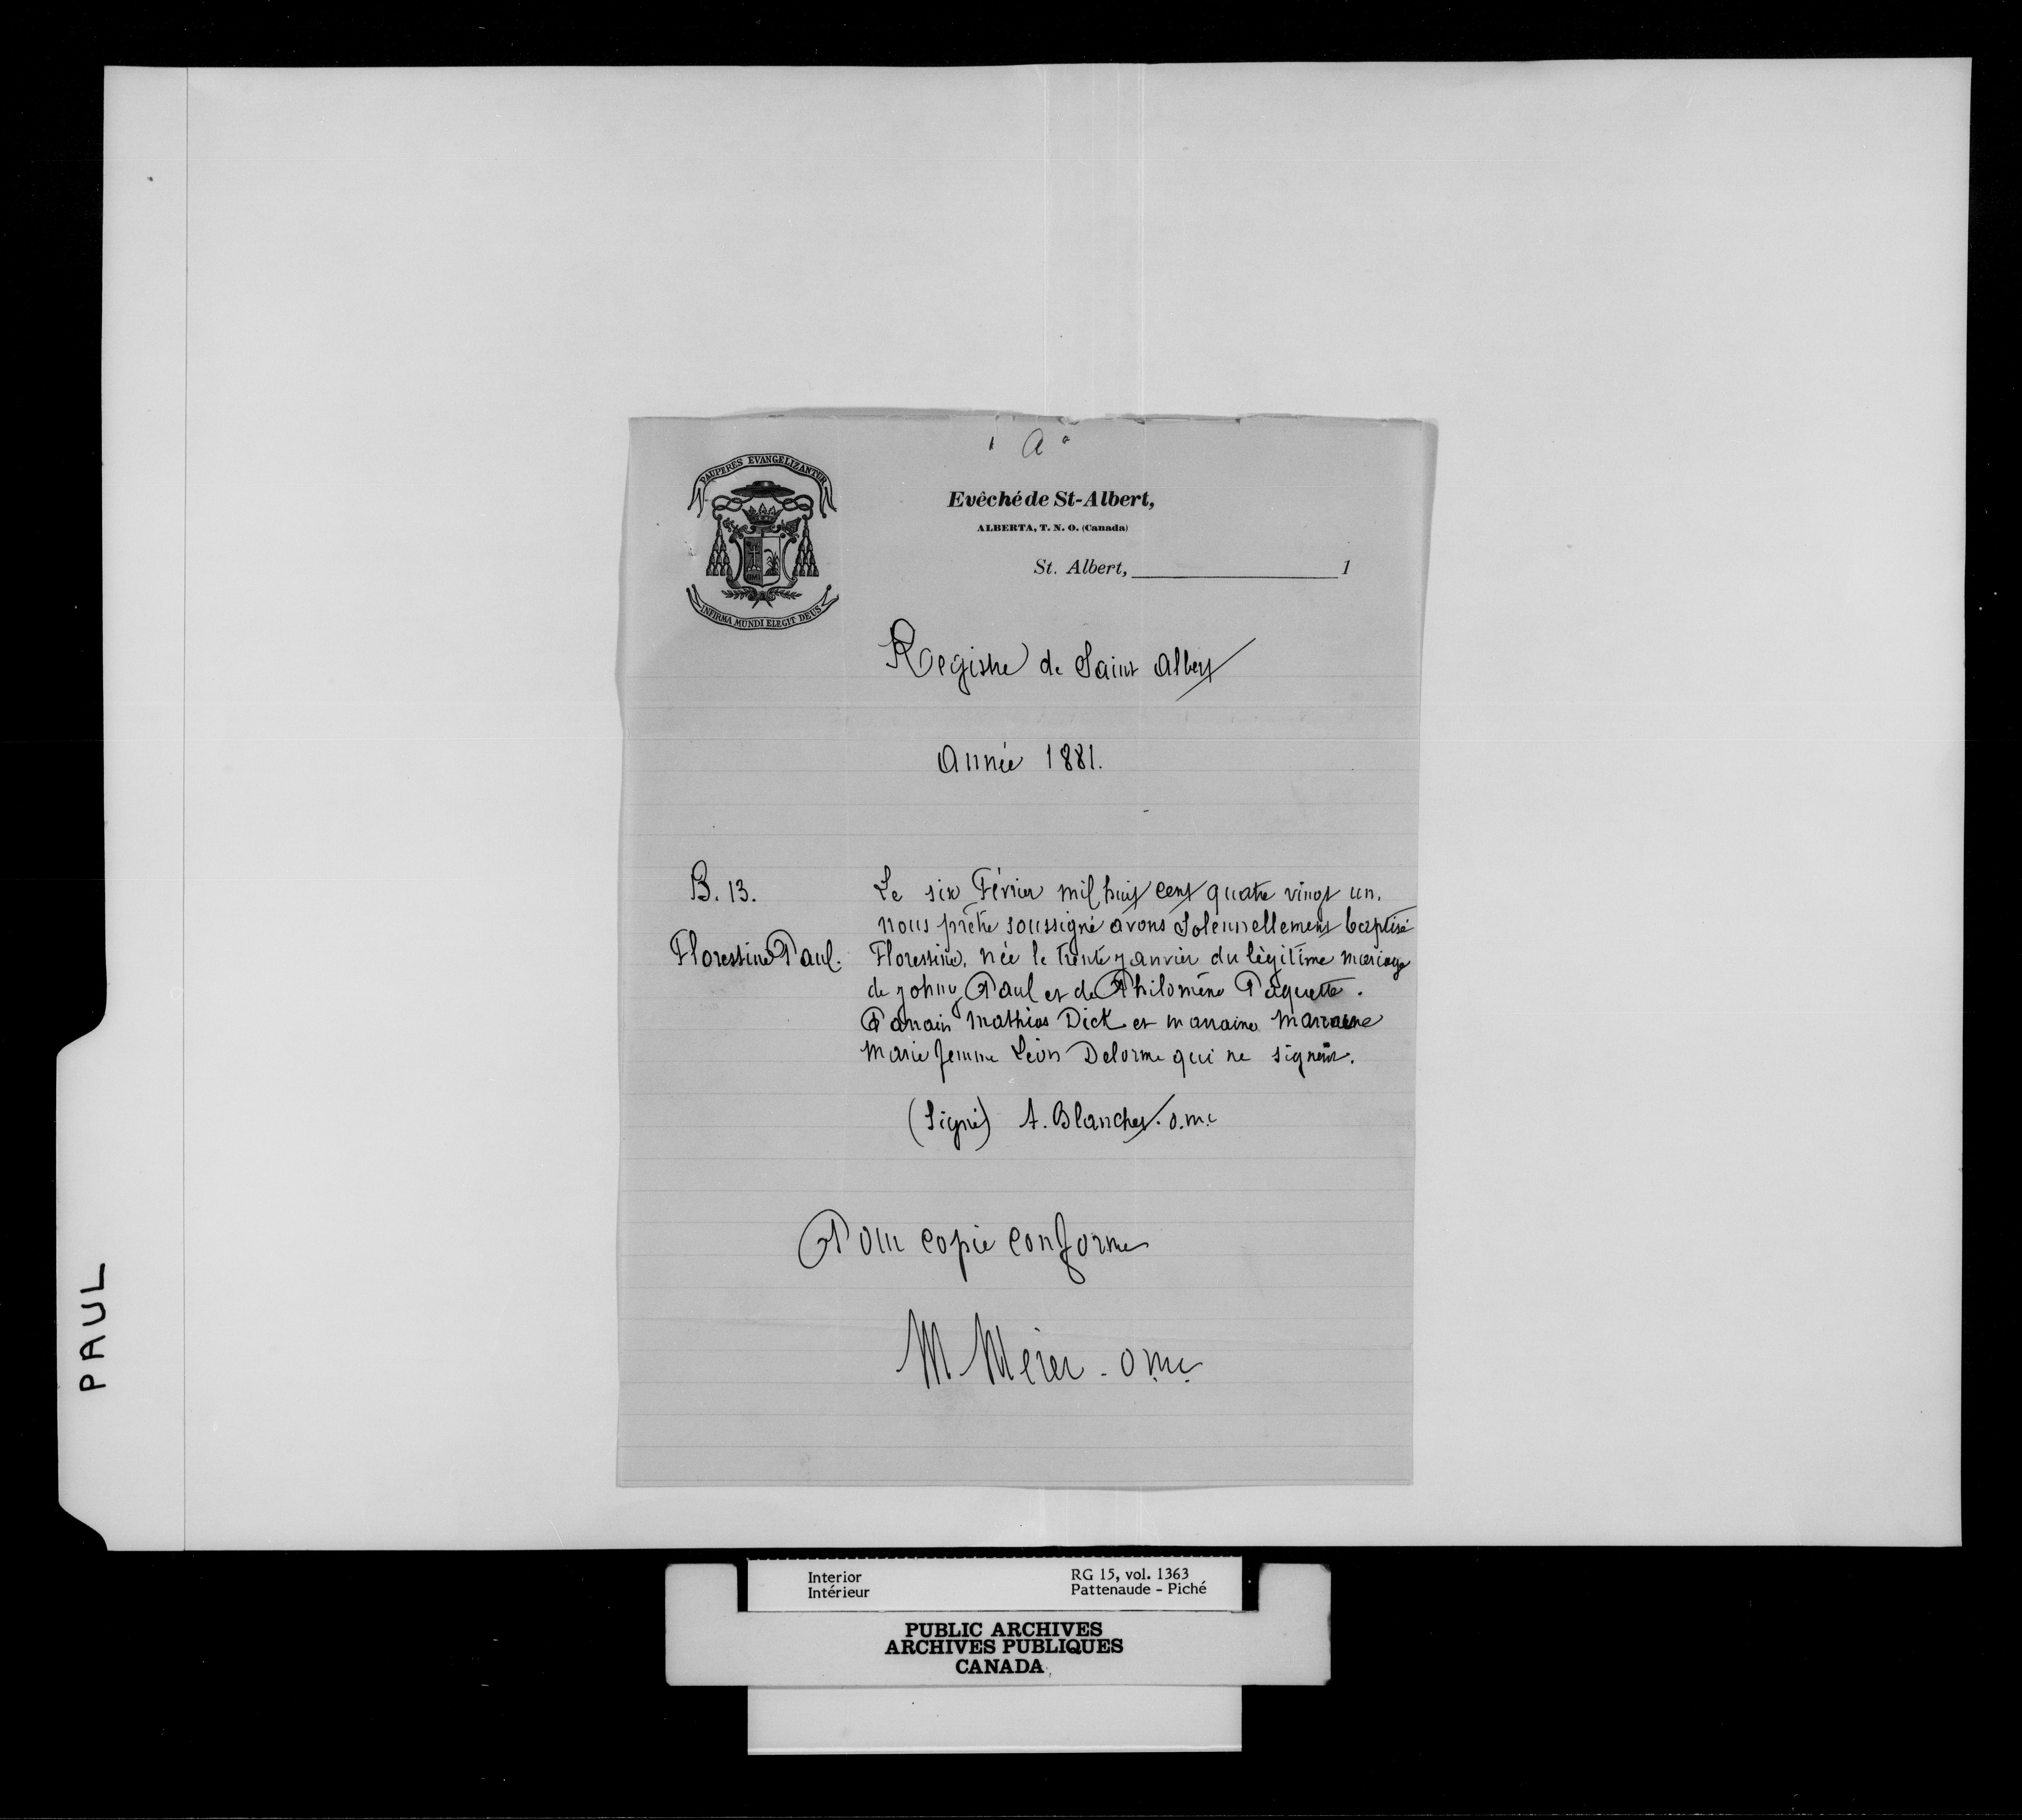 "A"
PAUPERES EVANGELIZANTUR
OMI
INFIRMA MUNDI ELEGIT DEUS
Evêché de St-Albert,
ALBERTA, T. N. O. (Canada)
St. Albert, 1
Registre de Saint Albert
Année 1881.
B. 13.
Florestine Paul.
Le six Février mil huit cent quatre vingt un.
nous prêtre soussigné avons Solennellement baptisé
Florestine, née le trente janvier du légitime mariage
de johny Paul et de Philomène Paquette.
Parrain Mathias Dick et marraine marraine
Marie femme Léon Delorme qui ne signent.
(Signé) A. Blanchet. o.m.i
Pour copie conforme
M Mérer - o.m.i.
PAUL
Interior
Intérieur
RG 15, vol. 1363
Pattenaude - Piché
PUBLIC ARCHIVES
ARCHIVES PUBLIQUES
CANADA